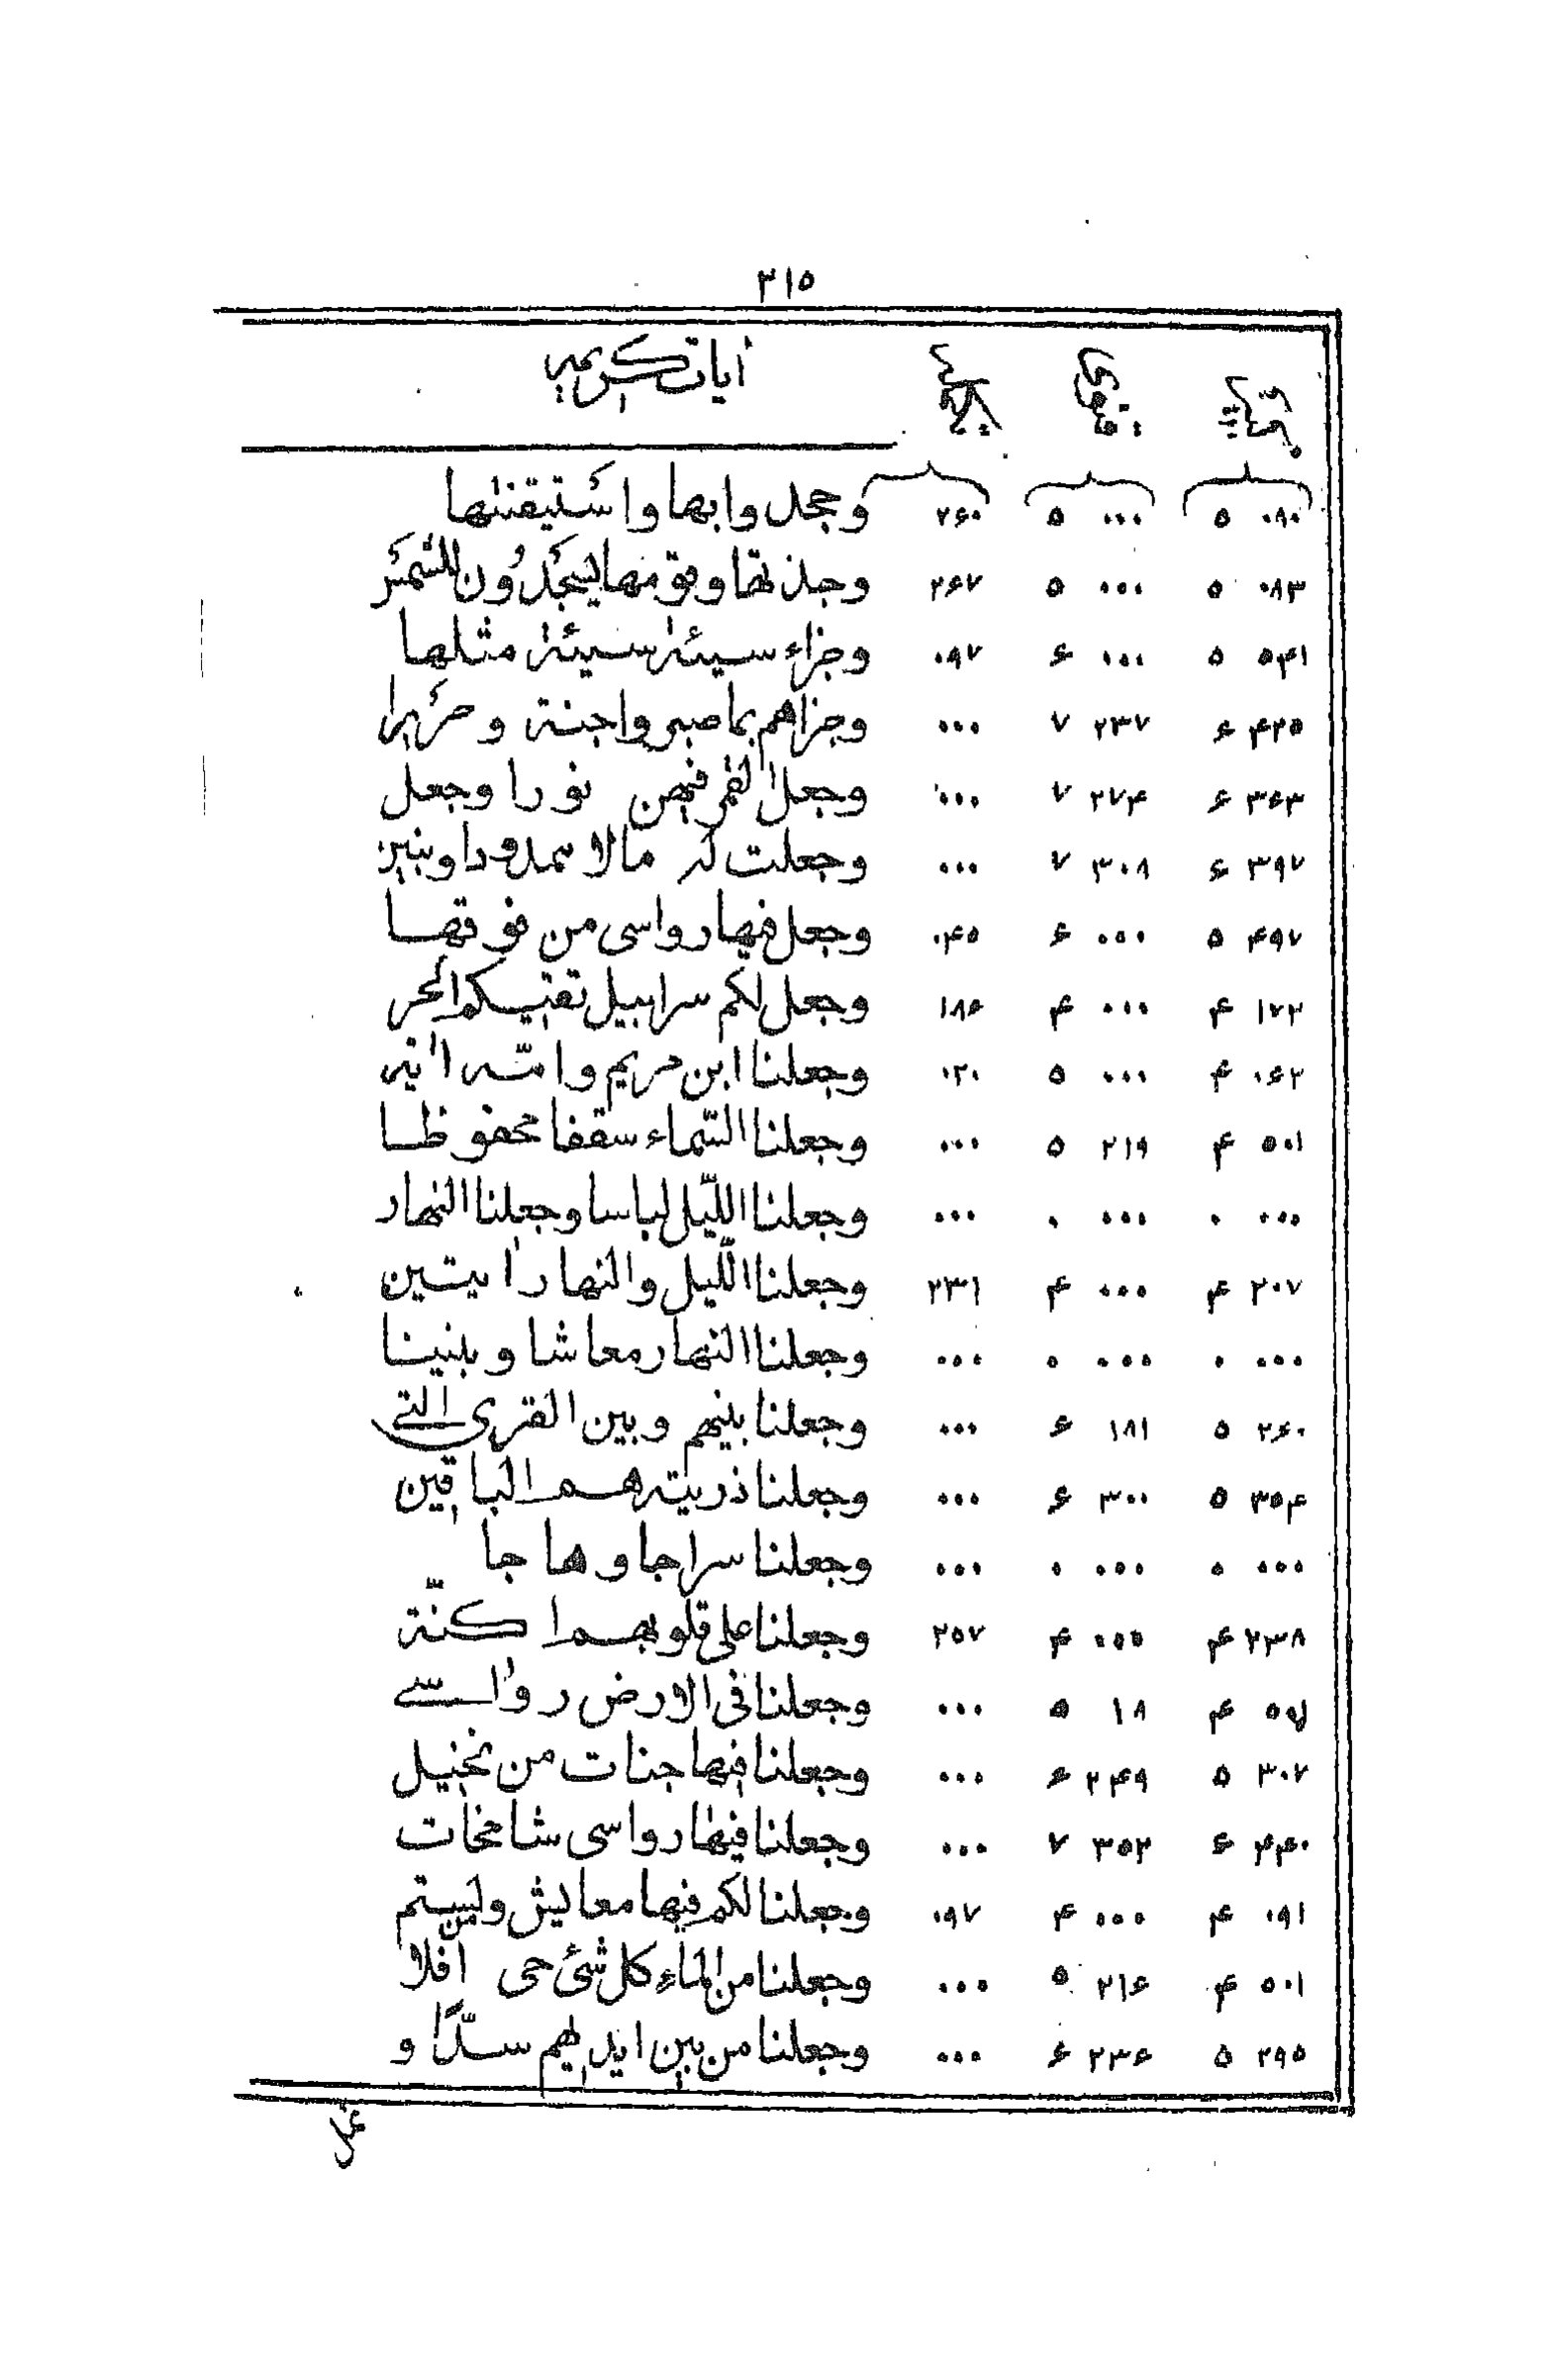 ۳۱۵
آیات کریمه
۰۸۰ ۵ ۰۰۰ ۵ ۲۶۰ وجحدوا بها واستیقنتها
۰۸۳ ۵ ۰۰۰ ۵ ۲۶۷ وجدتها وقومها یسجدون للشمس
۵۴۱ ۵ ۰۰۰ ۶ ۰۹۷ وجزاء سیئة سیئة مثلها
۴۲۵ ۶ ۲۳۷ ۷ ۰۰۰ وجزاهم بما صبروا جنة وحریرا
۳۶۳ ۶ ۲۷۴ ۷ ۰۰۰ وجعل القمر فیهن نورا وجعل
۳۹۷ ۶ ۳۰۸ ۷ ۰۰۰ وجعلت له مالا ممدودا وبنین
۴۹۷ ۵ ۰۰۰ ۶ ۰۴۵ وجعل فیها رواسی من فوقها
۱۷۲ ۴ ۰۰۰ ۴ ۱۸۶ وجعل لکم سرابیل تقیکم الحر
۰۶۲ ۴ ۰۰۰ ۵ ۰۲۰ وجعلنا ابن مریم وامّه اٰیة
۵۰۱ ۴ ۲۱۹ ۵ ۰۰۰ وجعلنا السّماء سقفا محفوظا
۰۰۰ ۰ ۰۰۰ ۰ ۰۰۰ وجعلنا اللّیل لباسا وجعلنا النهار
۲۰۷ ۴ ۰۰۰ ۴ ۲۳۱ وجعلنا اللّیل والنهار اٰیتین
۰۰۰ ۰ ۰۰۰ ۰ ۰۰۰ وجعلنا النهار معاشا وبنینا
۲۶۰ ۵ ۱۸۱ ۶ ۰۰۰ وجعلنا بینهم وبین القری التی
۳۵۴ ۵ ۳۰۰ ۶ ۰۰۰ وجعلنا ذریته هم الباقین
۰۰۰ ۰ ۰۰۰ ۰ ۰۰۰ وجعلنا سراجا وهاجا
۲۳۸ ۴ ۰۰۰ ۴ ۲۵۷ وجعلنا علی قلوبهم اکنّة
۴ ۱۸ ۵ ۰۰۰ وجعلنا فی الارض رواسے
۳۰۷ ۵ ۲۴۹ ۶ ۰۰۰ وجعلنا فیها جنات من نخیل
۴۴۰ ۶ ۳۵۲ ۷ ۰۰۰ وجعلنا فیها رواسی شامخات
۰۹۱ ۴ ۰۰۰ ۴ ۰۹۷ وجعلنا لکم فیها معایش ومن لستم
۵۰۱ ۴ ۲۱۶ ۵ ۰۰۰ وجعلنا من الماء کل شئ حی افلا
۲۹۵ ۵ ۲۳۶ ۶ ۰۰۰ وجعلنا من بین ایدیهم سدّا و